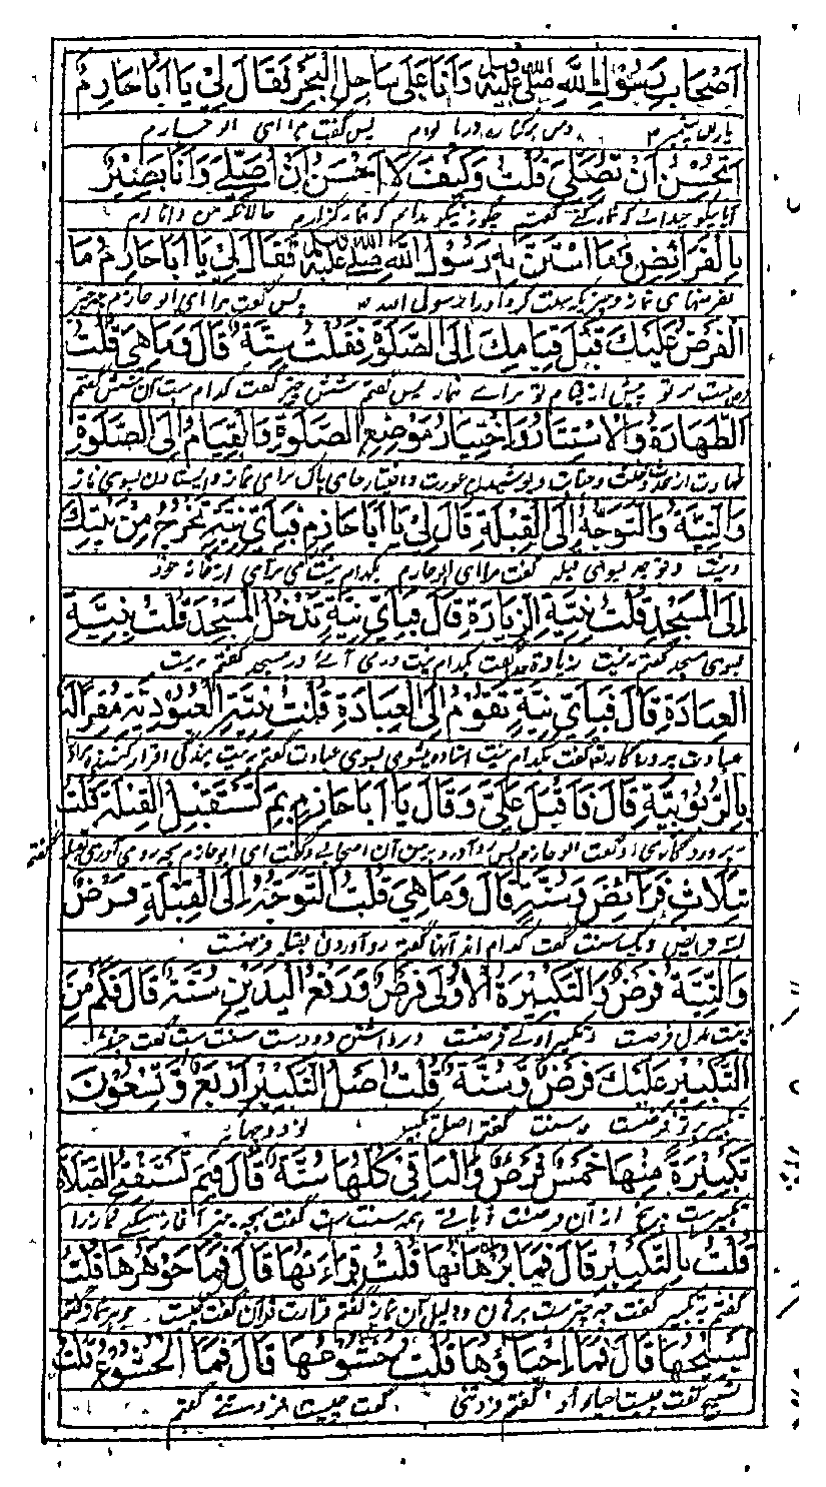 اَصْحَابِ رَسُوْلِ اللّٰهِ صلى الله عليه وسلم وَاَنَا عَلٰى سَاحِلِ الْبَحْرِ فَقَالَ لِيْ يَا اَبَا حَازِمُ
پس گفت مرا ای ابو حازم
اَتُحْسِنُ اَنْ تُصَلِّيَ قُلْتُ وَكَيْفَ لَا اُحْسِنُ اَنْ اُصَلِّيَ وَاَنَا بَصِيْرٌ
گفتم چگونه نیکو ندانم که نماز گزارم حالانکه من دانا ام
بِالْفَرَائِضِ وَمَا اسْتَنَّ بِهِ رَسُوْلُ اللّٰهِ صلى الله عليه وسلم فَقَالَ لِيْ يَا اَبَا حَازِمُ مَا
بفرضهای نماز و چیزیکه سنت کرد آنرا رسول الله پس گفت مرا ای ابو حازم چه چیز
الْفَرْضُ عَلَيْكَ قَبْلَ قِيَامِكَ اِلَى الصَّلٰوةِ فَقُلْتُ سِتَّةٌ قَالَ وَمَا هِيَ قُلْتُ
فرض است بر تو پیش از قیام تو برای نماز پس گفتم شش چیز گفت کدام است آن شش گفتم
الطَّهَارَةُ وَالْاِسْتِتَارُ وَاخْتِيَارُ مَوْضِعِ الصَّلٰوةِ وَالْقِيَامُ اِلَى الصَّلٰوةِ
طهارت از و پوشیدن عورت و اختیار جای پاک برای نماز و ایستادن بسوی نماز
وَالنِّيَّةُ وَالتَّوَجُّهُ اِلَى الْقِبْلَةِ قَالَ لِيْ يَا اَبَا حَازِمِ فَبِاَيِّ نِيَّةٍ تَخْرُجُ مِنْ بَيْتِكَ
و نیت و توجه بسوی قبله گفت مرا ای ابو حازم بکدام نیت می برآی از خانه خود
اِلَى الْمَسْجِدِ قُلْتُ بِنِيَّةِ الزِّيَارَةِ قَالَ فَبِاَيِّ نِيَّةٍ تَدْخُلُ الْمَسْجِدَ قُلْتُ بِنِيَّةِ
بسوی مسجد گفتم به نیت زیارت گفت بکدام نیت در می آئی در مسجد گفتم به نیت
الْعِبَادَةِ قَالَ فَبِاَيِّ نِيَّةٍ تَقُوْمُ اِلَى الْعِبَادَةِ قُلْتُ بِنِيَّةِ الْعُبُوْدِيَّةِ مُقِرًّا لَهُ
عبادت گفت بکدام نیت استاده میشوی بسوی عبادت گفتم به نیت بندگی اقرار کننده
بِالرُّبُوْبِيَّةِ قَالَ فَاَقْبَلَ عَلَيَّ وَقَالَ يَا اَبَا حَازِمِ بِمَ تَسْتَقْبِلُ الْقِبْلَةَ قُلْتُ
به پروردگاری او گفت ابو حازم پس رو آورد بر من آن اصحابی و گفت ای ابو حازم بچه رو می آوری قبله گفتم
بِثَلَاثِ فَرَائِضَ وَسُنَّةٍ قَالَ وَمَا هِيَ قُلْتُ التَّوَجُّهُ اِلَى الْقِبْلَةِ فَرْضٌ
بسه فرائض و یک سنت گفت کدام اند آنها گفتم رو آوردن بقبله فرضست
وَالنِّيَّةُ فَرْضٌ وَالتَّكْبِيْرَةُ الْاُوْلٰى فَرْضٌ وَرَفْعُ الْيَدَيْنِ سُنَّةٌ قَالَ فَكَمْ مِنَ
نیت بدل فرضست و تکبیر اولی فرضست و برداشتن دو دست سنت ست گفت چند
التَّكْبِيْرِ عَلَيْكَ فَرْضٌ وَسُنَّةٌ قُلْتُ اَصْلُ التَّكْبِيْرِ اَرْبَعٌ وَّتِسْعُوْنَ
تکبیر بر تو فرضست و سنت گفتم اصل تکبیر نود و چهار
تَكْبِيْرَةً مِنْهَا خَمْسٌ فَرْضٌ وَالْبَاقِيْ كُلُّهَا سُنَّةٌ قَالَ فَبِمَ تَسْتَفْتِحُ الصَّلٰاةَ
تکبیر ست پنج از آن فرضست و باقی همه سنت ست گفت بچه چیز آغاز میکنی نماز را
قُلْتُ بِالتَّكْبِيْرِ قَالَ فَمَا بُرْهَانُهَا قُلْتُ قِرَاءَتُهَا قَالَ فَمَا جَوْهَرُهَا قُلْتُ
گفتم به تکبیر گفت چه چیز ست برهان و دلیل آن نماز گفتم قرارت قرآن گفت چیست جوهر نماز گفتم
تَسْبِيْحُهَا قَالَ فَمَا اِحْيَاؤُهَا قُلْتُ خُشُوْعُهَا قَالَ فَمَا الْخُشُوْعُ قُلْتُ
تسبیح گفت چیست احیاء او گفتم فروتنی گفت چیست فروتنی گفتم